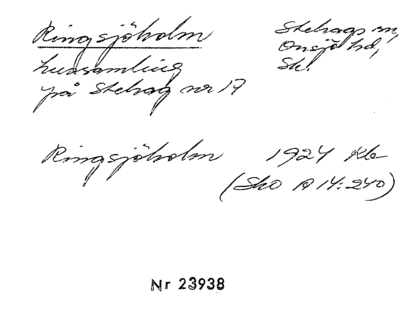 Ringsjöholm
Stehags sn,
Onsjö hd,
hussamling
Sk.
på Stehag nr 17
Ringsjöholm 1924 Kle
(SkO A 14:240)
Nr 23938